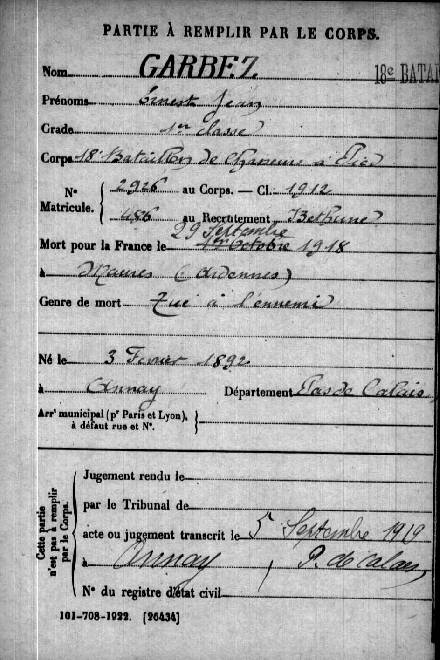 PARTIE À REMPLIR PAR LE CORPS.
Nom GARBEZ
18e BATAI
Prénoms Ernest Jean
Grade 1er classe
Corps 18e Bataillon de Chasseurs à Pied
N° Matricule. { 2926 au Corps. — Cl. 1912
486 au Recrutement Béthune
29 Septembre
Mort pour la France le 1er Octobre 1918
à Manres (Ardennes)
Genre de mort Tué à l'ennemi
Né le 3 Février 1892
à Annay Département Pas de Calais
Arrt municipal (pr Paris et Lyon), à défaut rue et N°. }
Cette partie n'est pas à remplir par le Corps.
Jugement rendu le
par le Tribunal de
acte ou jugement transcrit le 5 Septembre 1919
à Annay, P. de Calais
N° du registre d'état civil
101-708-1922. [26434]